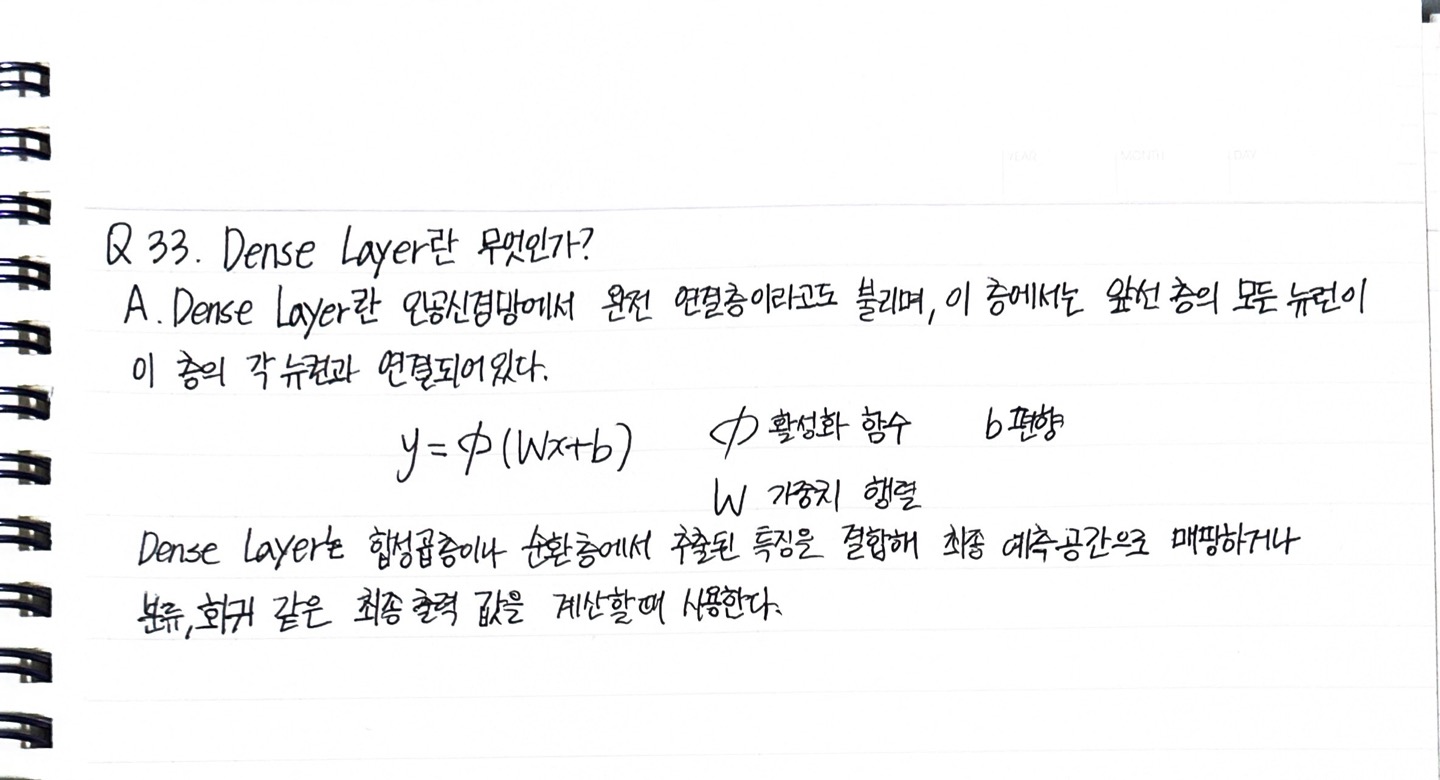 YEAR MONTH DAY
Q 33. Dense Layer란 무엇인가?
A. Dense Layer란 인공신경망에서 완전 연결층이라고도 불리며, 이 층에서는 앞선 층의 모든 뉴런이
이 층의 각 뉴런과 연결되어있다.
y = φ (Wx+b) φ 활성화 함수 b 편향
W 가중치 행렬
Dense Layer는 합성곱층이나 순환층에서 추출된 특징을 결합해 최종 예측공간으로 매핑하거나
분류, 회귀 같은 최종 출력 값을 계산할 때 사용한다.